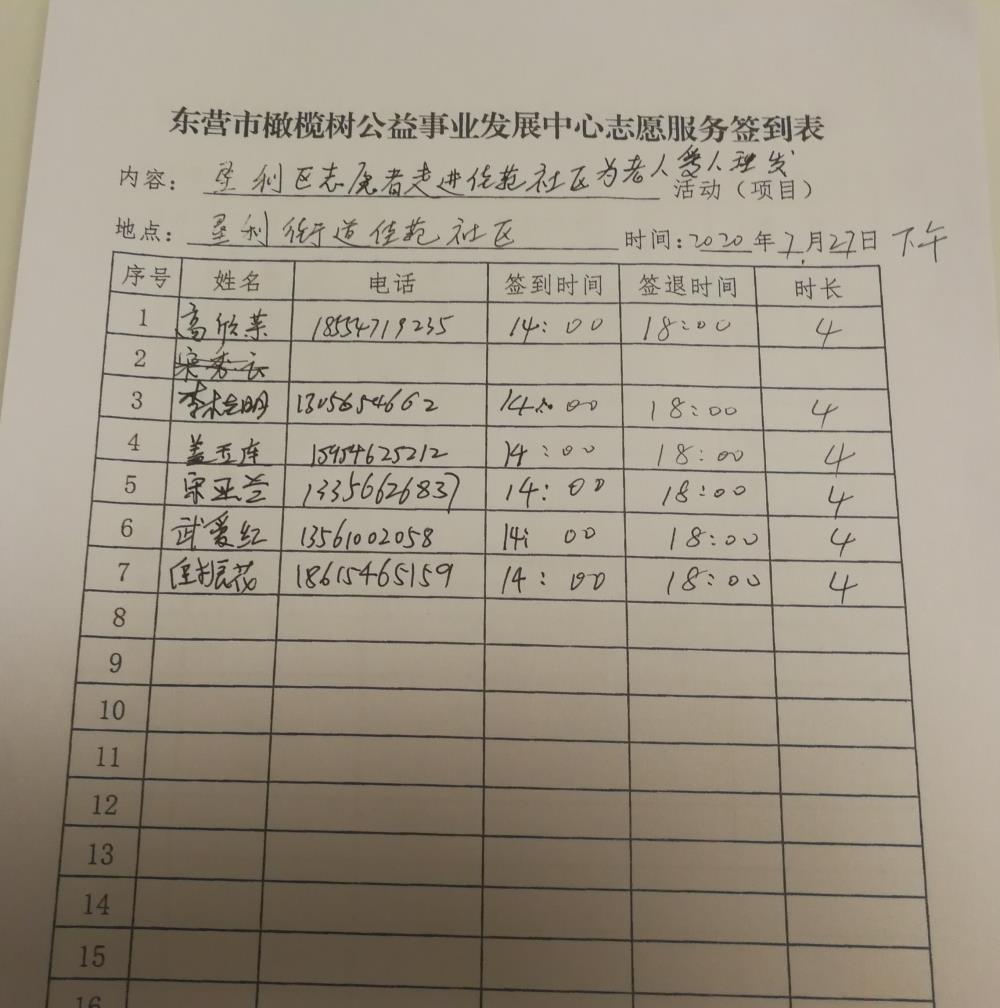 东营市橄榄树公益事业发展中心志愿服务签到表
内容： 垦利区志愿者走进佳苑社区为老人爱人理发 活动（项目）
地点： 垦利街道佳苑社区 时间：2020年7月27日 下午
序号 姓名 电话 签到时间 签退时间 时长
1 高欣荣 18554719235 14：00 18：00 4
2
3 13056154662 14：00 18：00 4
4 盖玉连 15954625212 14：00 18：00 4
5 宋亚兰 13356626837 14：00 18：00 4
6 武爱红 13561002058 14：00 18：00 4
7 18615465159 14：00 18：00 4
8
9
10
11
12
13
14
15
16